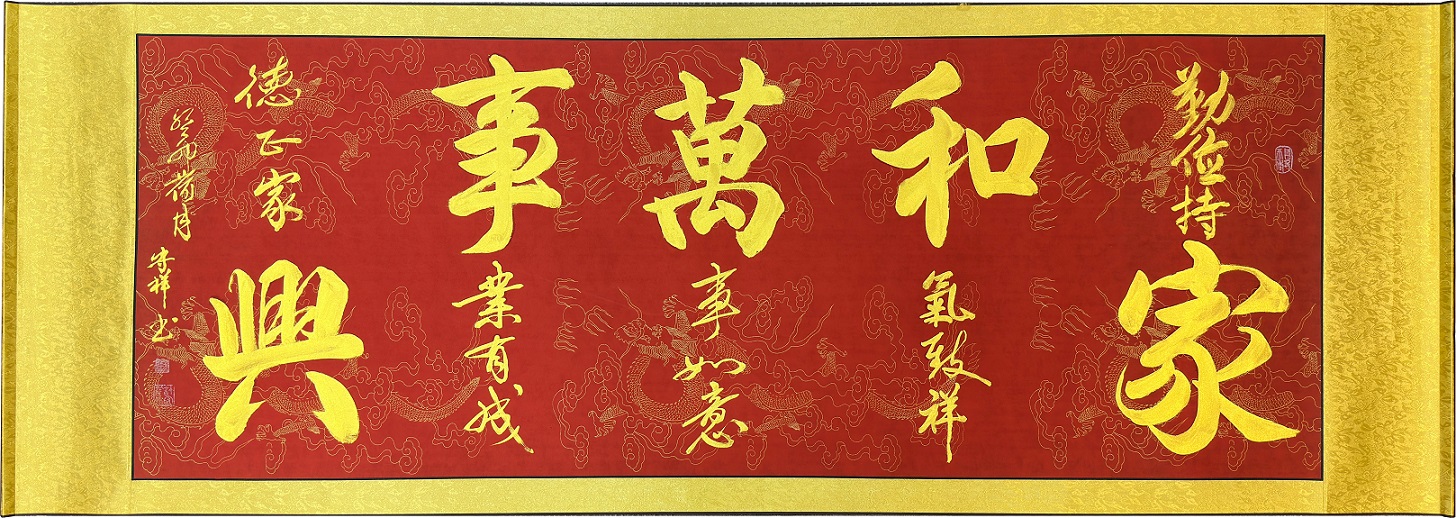 勤俭持家
和氣致祥
萬事如意
事業有成
德正家興
癸卯荷月
守祥书